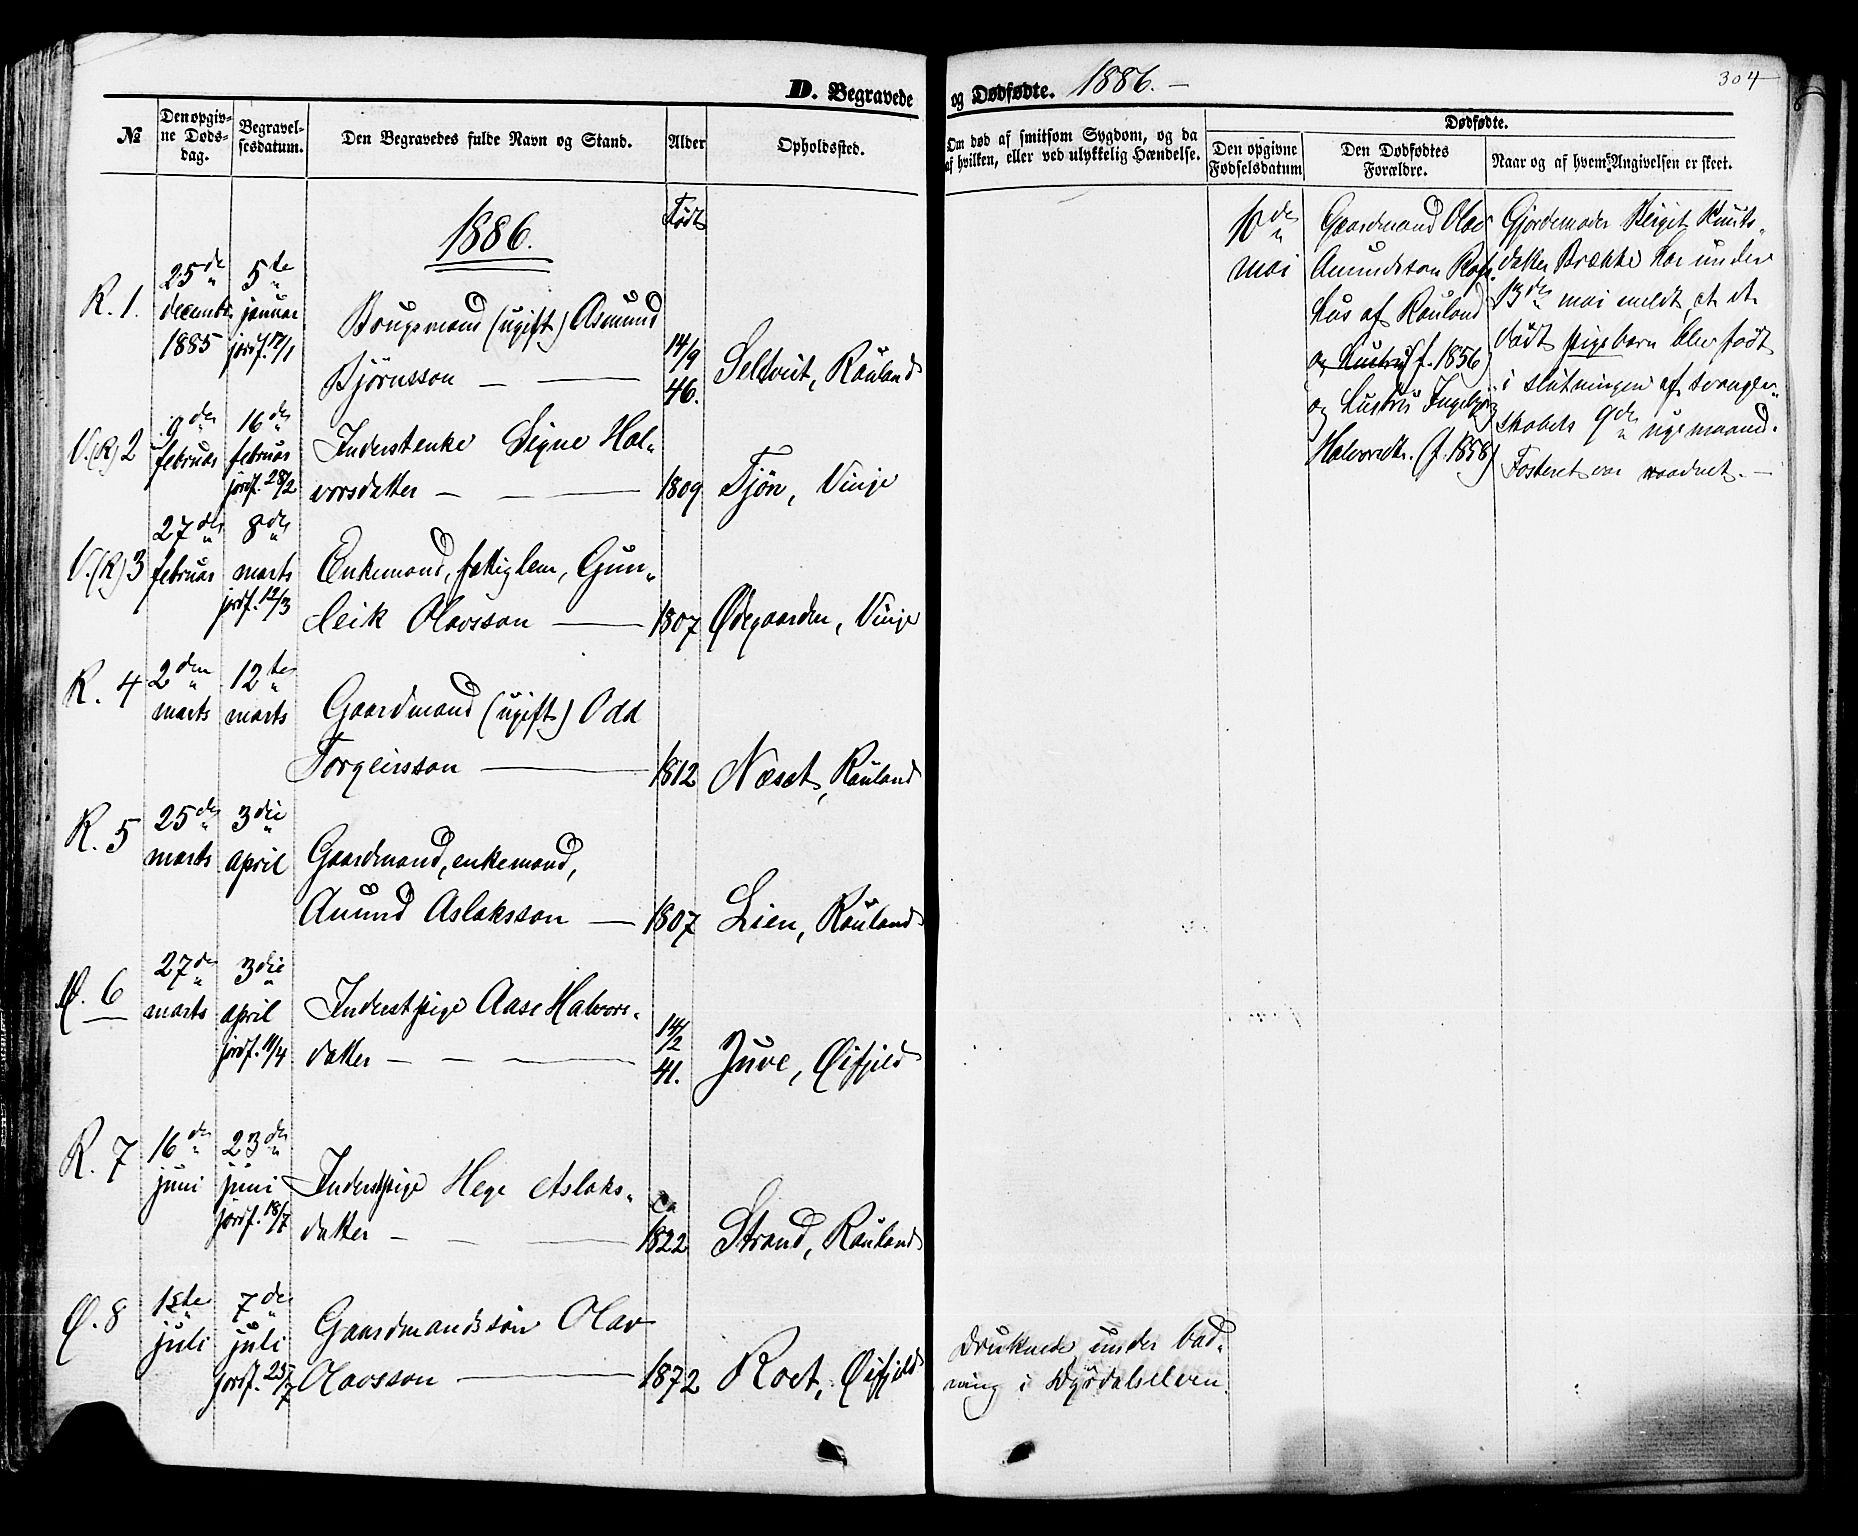 D. Begravede
og Dødfødte. 1886. –
304
№
Den opgivne Døds-dag.
Begravel-sesdatum.
Den Begravedes fulde Navn og Stand.
Alder
Opholdssted.
Om død af smitsom Sygdom, og da
af hvilken, eller ved ulykkelig Hændelse.
Dødfødte.
Den opgivne
Fødselsdatum
Den Dødfødtes
Forældre.
Naar og af hvem Angivelsen er skeet.
1886.
Født
R. 1.
25de
decembr.
1885
5te
januar
jordf. 17/1
Brugsmand (ugift) Asmund
Bjørnsson – —
14/9
46.
Seltveit, Rauland
V.(R) 2
9de
februar
16de
februar
jordf. 28/2
Inderstenke Signe Hal-
vorsdatter – – —
1809
Tjøn, Vinje
V.(R) 3
27de
februar
8de
marts
jordf. 12/3
Enkemand, fattiglem, Gun-
leik Olavsson —
1807
Ødegaarden, Vinje
R. 4
2den
marts
12te
marts
Gaardmand (ugift) Odd
Torgeirsson —
1812
Næset, Rauland
R. 5
25de
marts
3die
april
Gaardmand, enkemand,
Anund Aslaksson —
1807
Lien, Rauland
Ø. 6
27de
marts
3die
april
jordf. 11/4
Inderstpige Aase Halvors-
datter – – —
14/2
41.
Juve, Øifjeld
R. 7
16de
juni
23de
juni
jordf. 18/7
Inderstpige Hege Aslaks-
datter – – —
Ca
1822
Strand, Rauland
Ø. 8
1ste
juli
7de
juli
jordf. 25/7
Gaardmandssøn Olav
Olavsson —
1872
Roet, Øifjeld
druknede under bad-
ning i Dyrdalselven.
10de
mai
Gaardmand Olav
Amundsson
hus af Rauland
og hustru (f. 1856)
og hustru Ingebjørg
Halvorsdtr. (f. 1858)
Gjordemoder Birgit Knuts-
datter Brække har under
13de mai meldt, at et
dødt pigebarn blev født
i slutningen af svangler-
skabets 9de ugemaaned.
Fosteret var raadnet. –